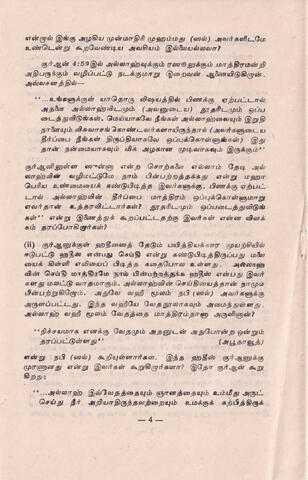 என்றால் இங்கு அழகிய முன்மாதிரி முஹம்மது (ஸல்) அவர்களிடமே
உண்டென்று கூறவேண்டிய அவசியம் இல்லையல்லவா?
குர்ஆன் 4:59இல் அல்லாஹ்வுக்கும் ரஸூலுக்கும் மாத்திரமன்றி
அதிபருக்கும் வழிபட்டு நடக்குமாறு இறைவன் ஆணையிடுகிறான்.
அவ்வசனத்தில்—
“...உங்களுக்குள் யாதொரு விஷயத்தில் பிணக்கு ஏற்பட்டால்
அதனை அல்லாஹ்விடமும் (அவனுடைய) தூதரிடமும் ஒப்ப
டைத்துவிடுங்கள். மெய்யாகவே நீங்கள் அல்லாஹ்வையும் இறுதி
நாளையும் விசுவாசங்கொண்டவர்களாயிருந்தால் (அவர்களுடைய
தீர்ப்பை நீங்கள் திருப்தியாகவே ஒப்புக்கொள்ளுங்கள்) இது
தான் நன்மையாகவும் மிக அழகான முடிவாகவும் இருக்கும்”
குர்ஆனிலுள்ள ஸுன்னா என்ற சொற்களை எல்லாம் தேடி அல்
லாஹ்வின் வழிமட்டுமே நாம் பின்பற்றத்தக்கது என்று மஹா
பெரிய உண்மையைக் கண்டுபிடித்த இவர்களுக்கு, பிணக்கு ஏற்பட்
டால் அல்லாஹ்வின் தீர்ப்பை மாத்திரம் ஒப்புக்கொள்ளுமாறு
ஏவர்தான் உத்தரவிட்டார்கள்? தூதரிடமும் ஒப்படைத்துவிடுங்
கள்” என்று இணைத்துக் கூறப்பட்டதற்கு இவர்கள் என்ன விளக்
கம் தரப்போகிறார்கள்?
(ii) குர்ஆனுக்குள் ஹதீஸைத் தேடும் பயித்தியக்கார முயற்சியில்
ஈடுபட்டு ஹதீஸ் என்பது செய்தி என்று கண்டுபிடித்திருப்பது மலை
யைக் கிள்ளி எலியைப் பிடித்த கதைபோல உள்ளது. அல்லாஹ்
வின் செய்தி மாத்திரமே நாம் பின்பற்றத்தக்க ஹதீஸ் என்பது இவர்
களது மனட்டு வாதமாகும். அல்லாஹ்வின் செய்தியைத்தான் நாமும்
பின்பற்றுகிறோம். அதுவே வஹீ மூலம் நபி (ஸல்) அவர்களுக்கு
அருளப்பட்டது. இந்த வஹீயே வேதநூலாகவும் அமைந்துள்ளது.
அல்லாஹ் வஹீ மூலம் வேதத்தை மாத்திரம்தானா அருளினான்?
“நிச்சயமாக எனக்கு வேதமும் அதனுடன் அதுபோன்ற ஒன்றும்
தரப்பட்டுள்ளது” (அபூதாவூத்)
என்று நபி (ஸல்) கூறியுள்ளார்கள். இந்த ஹதீஸ் குர்ஆனுக்கு
முரணானது என்று இவர்கள் கூறுகிறார்களா? இதோ குர்ஆன் கூறு
கிறது:
“...அல்லாஹ் இவ்வேதத்தையும் ஞானத்தையும் உம்மீது அருட்
செய்து நீர் அறியாதிருந்தவற்றையும் உமக்குக் கற்பித்திருக்
— 4 —